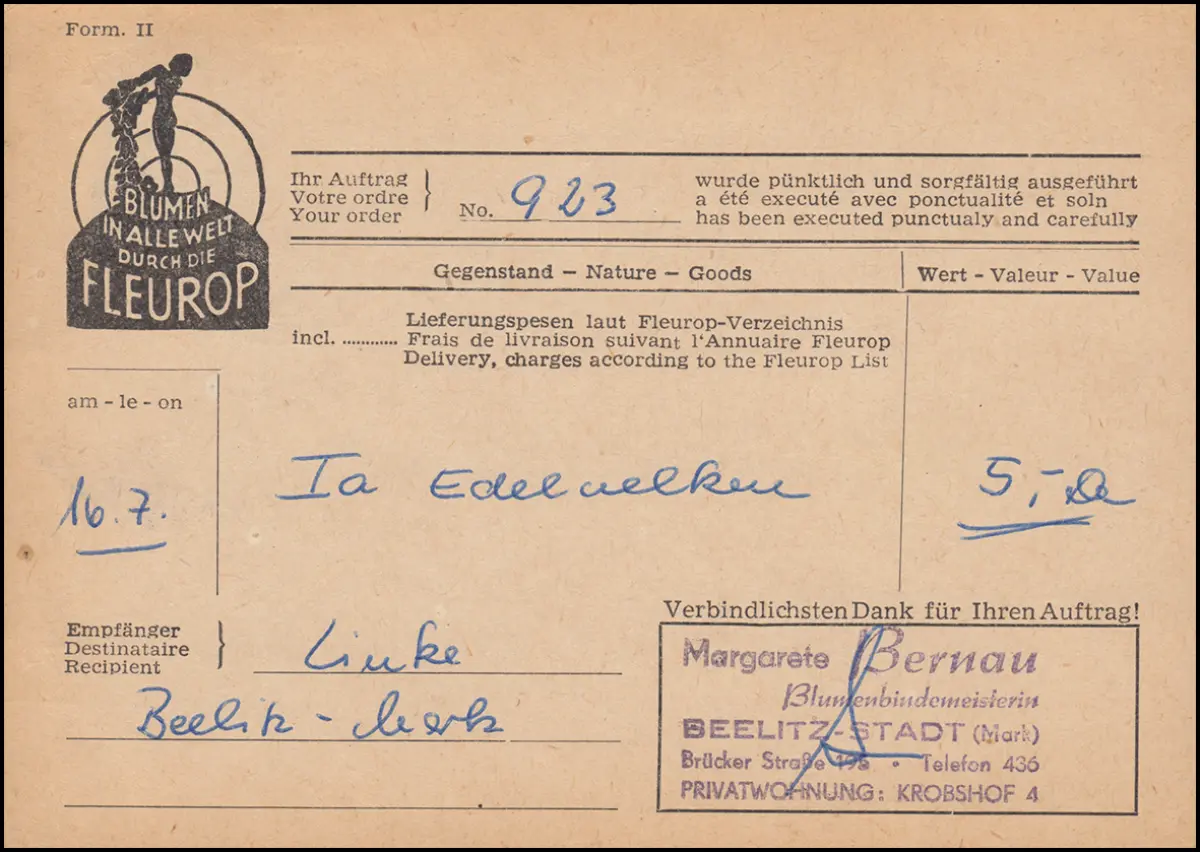 Form. II
BLUMEN
IN ALLE WELT
DURCH DIE
FLEUROP
Ihr Auftrag
Votre ordre
Your order
No. 923
wurde pünktlich und sorgfältig ausgeführt
a été executé avec ponctualité et soln
has been executed punctualy and carefully
Gegenstand – Nature – Goods
Wert - Valeur - Value
incl. ............
Lieferungspesen laut Fleurop-Verzeichnis
Frais de livraison suivant l'Annuaire Fleurop
Delivery, charges according to the Fleurop List
am - le - on
16.7.
Ia Edelnelken
5,-
Empfänger
Destinataire
Recipient
Linke
Beelitz - Mark
Verbindlichsten Dank für Ihren Auftrag!
Margarete Bernau
Blumenbindemeisterin
BEELITZ-STADT (Mark)
Brücker Straße • Telefon 436
PRIVATWOHNUNG: KROBSHOF 4